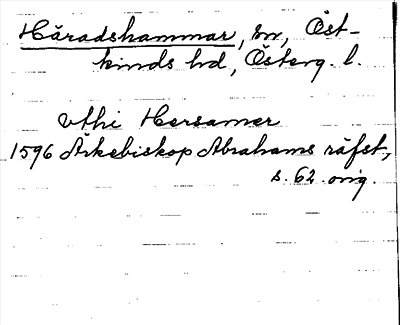 Häradshammar, sn, Öst-
kinds hd, Österg. l.
vthi Hersamer
1596 Ärkebiskop Abrahams räfst,
s. 62. orig.